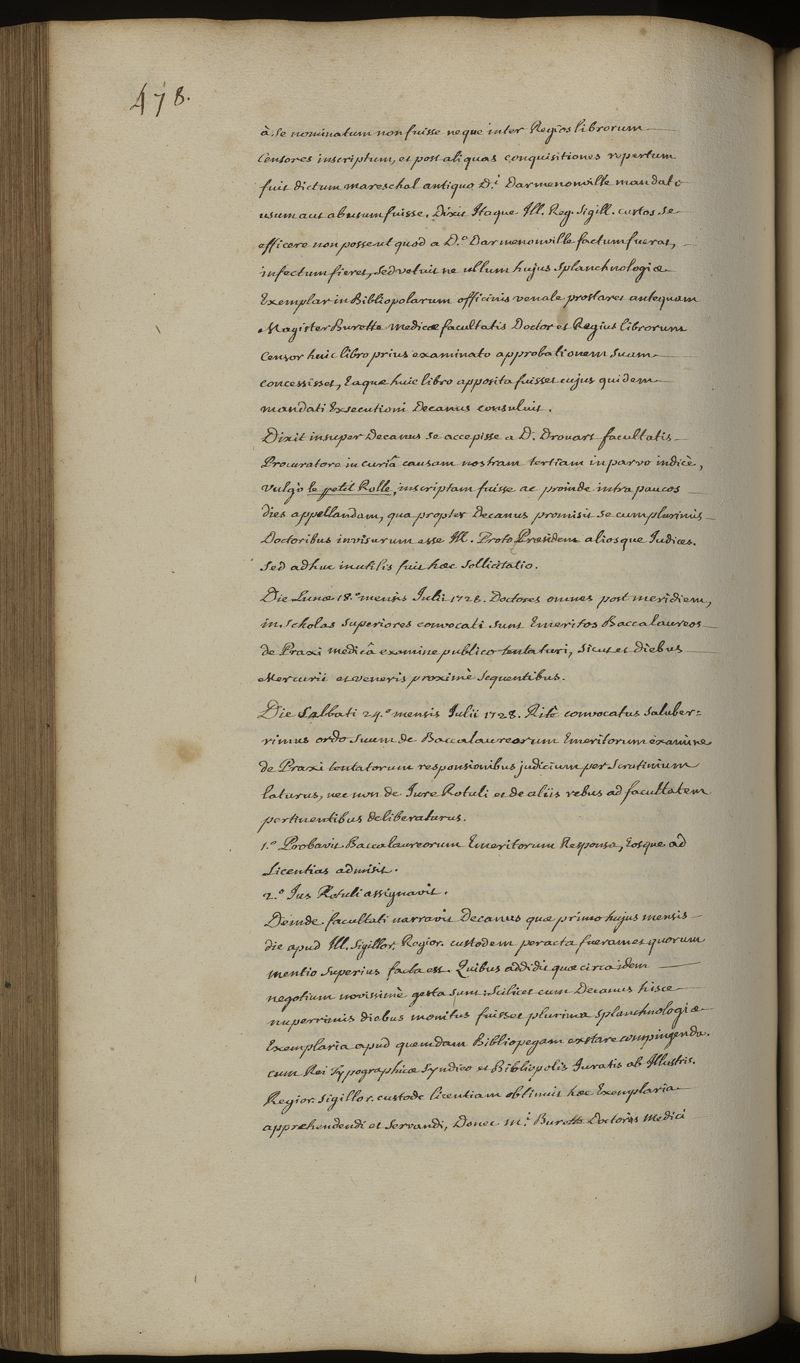 478.
à Se nominatum non fuisse neque inter Regios librorum
Censores inscriptum, et post aliquas conquisitiones repertum
fuit dictum mareschal antiquo D.i Darmenonville mandato
usum aut abusum fuisse. Dixit Itaque Ill. Reg. Sigill. custos se
efficere non posse ut quod a D.o Darmenonville factum fuerat,
infectum fieret, sed vetuit ne ullum hujus Splanchnologiæ
Exemplar in Bibliopolarum officinis venale prostaret antequam
Magister Burette medicæ facultatis Doctor et Regius librorum
Censor huic libro prius examinato approbationem suam
concessisset, Eaque huic libro apposita fuisset cujus quidem
mandati Exsecutioni Decanus consuluit.
Dixit insuper Decanus se accepisse a D. Drouart facultatis
Procuratore in curiâ causam nostram tertiam in parvo indice,
vulgò le petit Rolle, inscriptam fuisse ac proinde intra paucos
dies appellandam, qua propter Decanus promisit se cum plurimis
Doctoribus invisurum esse Ill. Proto Præsidem aliosque Iudices.
Sed adhuc inutilis fuit hæc sollicitatio.
Die Lunæ 18.o mensis Julii 1728. Doctores omnes post meridiem,
in Scholas Superiores convocati sunt Emeritos Baccalaureos
de Praxi medicâ examine publico tentaturi, sicut et diebus
Mercurii et veneris proximè sequentibus.
Die Sabbati 24.o mensis Julii 1728. Ritè convocatus saluber=
rimus ordo suum de Baccalaureorum Emeritorum examine
de Praxi tentatorum responsionibus judicium per Scrutinium
laturus, nec non de Jure Rotuli et de aliis rebus ad facultatem
pertinentibus deliberaturus.
1.o Probavit Baccalaureorum Emeritorum Responsa, Eosque ad
Licentias admisit.
2.o Jus Rotuli assignavit.
Deinde facultati narravit Decanus quæ primo hujus mensis
die apud Ill. Sigillor. Regior. custodem peracta fuerant et quorum
mentio superius facta est. Quibus addidit quæ circa idem
negotium novissimè gesta sunt: Scilicet cum Decanus hisce
nuperrimis diebus monitus fuisset plurima Splanchnologiæ
Exemplaria apud quemdam Bibliopegam extare compingenda.
cum Rei Typographicæ Syndico et Bibliopolis Juratis ab Illustris.
Regior. Sigillor. custode licentiam obtinuit hæc Exemplaria
apprehendendi et servandi, Donec M.i Burette Doctoris Medici